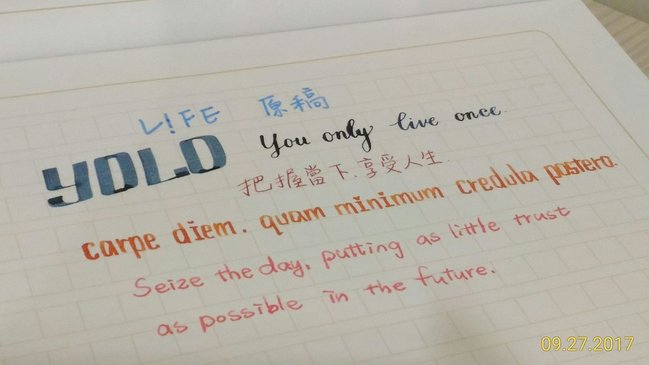 L!FE 原稿
YOLO You only live once.
把握當下.享受人生.
carpe diem. quam minimum credula postero.
Seize the day, putting as little trust
as possible in the future.
09.27.2017